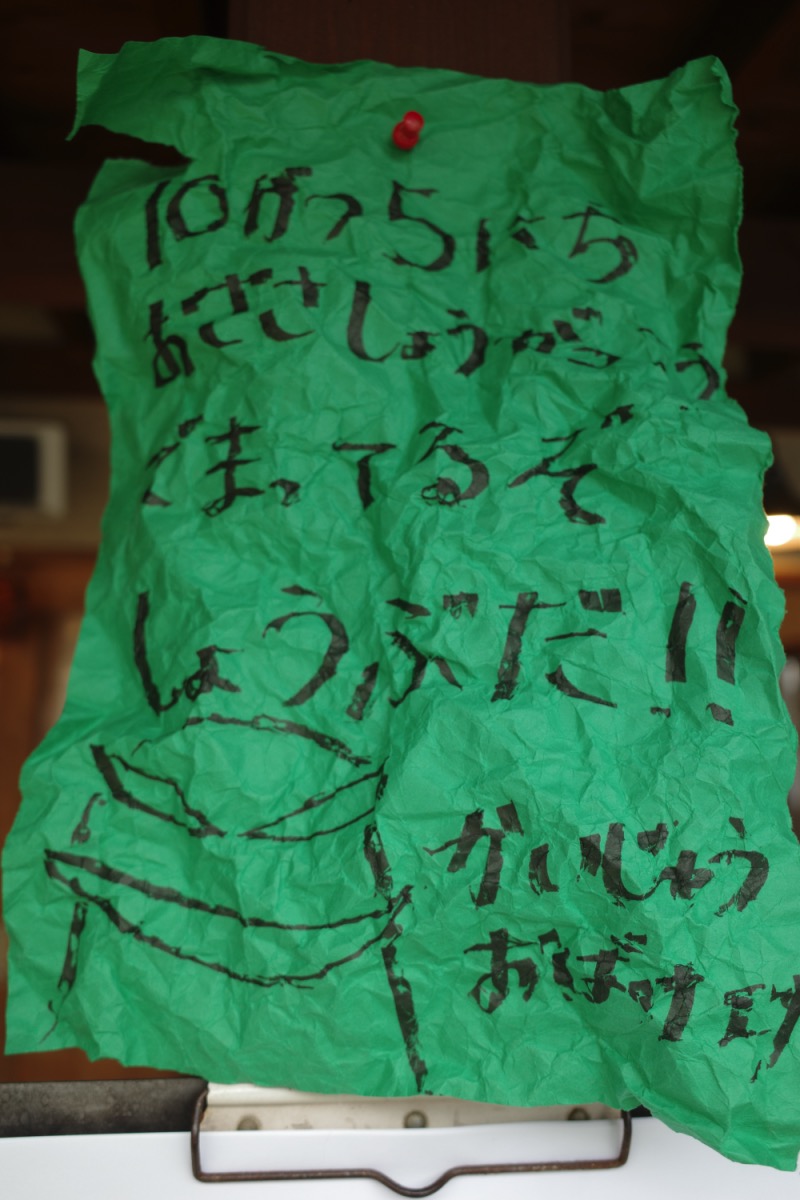 10がつ5にち
おざさしょうがっこう
でまってるぞ
しょうぶだ!!
かいじゅう
おばけ